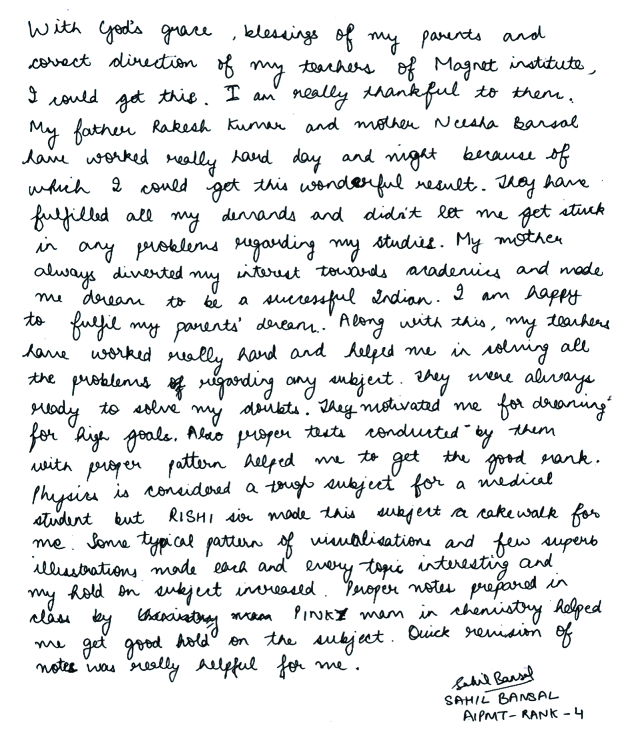 With God's grace, blessings of my parents and
correct direction of my teachers of Magnet institute,
I could get this. I am really thankful to them.
My father Rakesh Kumar and mother Neesha Bansal
have worked really hard day and night because of
which I could get this wonderful result. They have
fulfilled all my demands and didn't let me get stuck
in any problems regarding my studies. My mother
always diverted my interest towards academics and made
me dream to be a successful Indian. I am happy
to fulfil my parents' dream. Along with this, my teachers
have worked really hard and helped me in solving all
the problems regarding any subject. They were always
ready to solve my doubts. They motivated me for dreaming
for high goals. Also proper tests conducted by them
with proper pattern helped me to get the good rank.
Physics is considered a tough subject for a medical
student but RISHI sir made this subject a cakewalk for
me. Some typical pattern of visualisations and few superb
illusstrations made each and every topic interesting and
my hold on subject increased. Proper notes prepared in
class by PINKY mam in chemistry helped
me get good hold on the subject. Quick revision of
notes was really helpful for me.
Sahil Bansal
SAHIL BANSAL
AIPMT-RANK-4